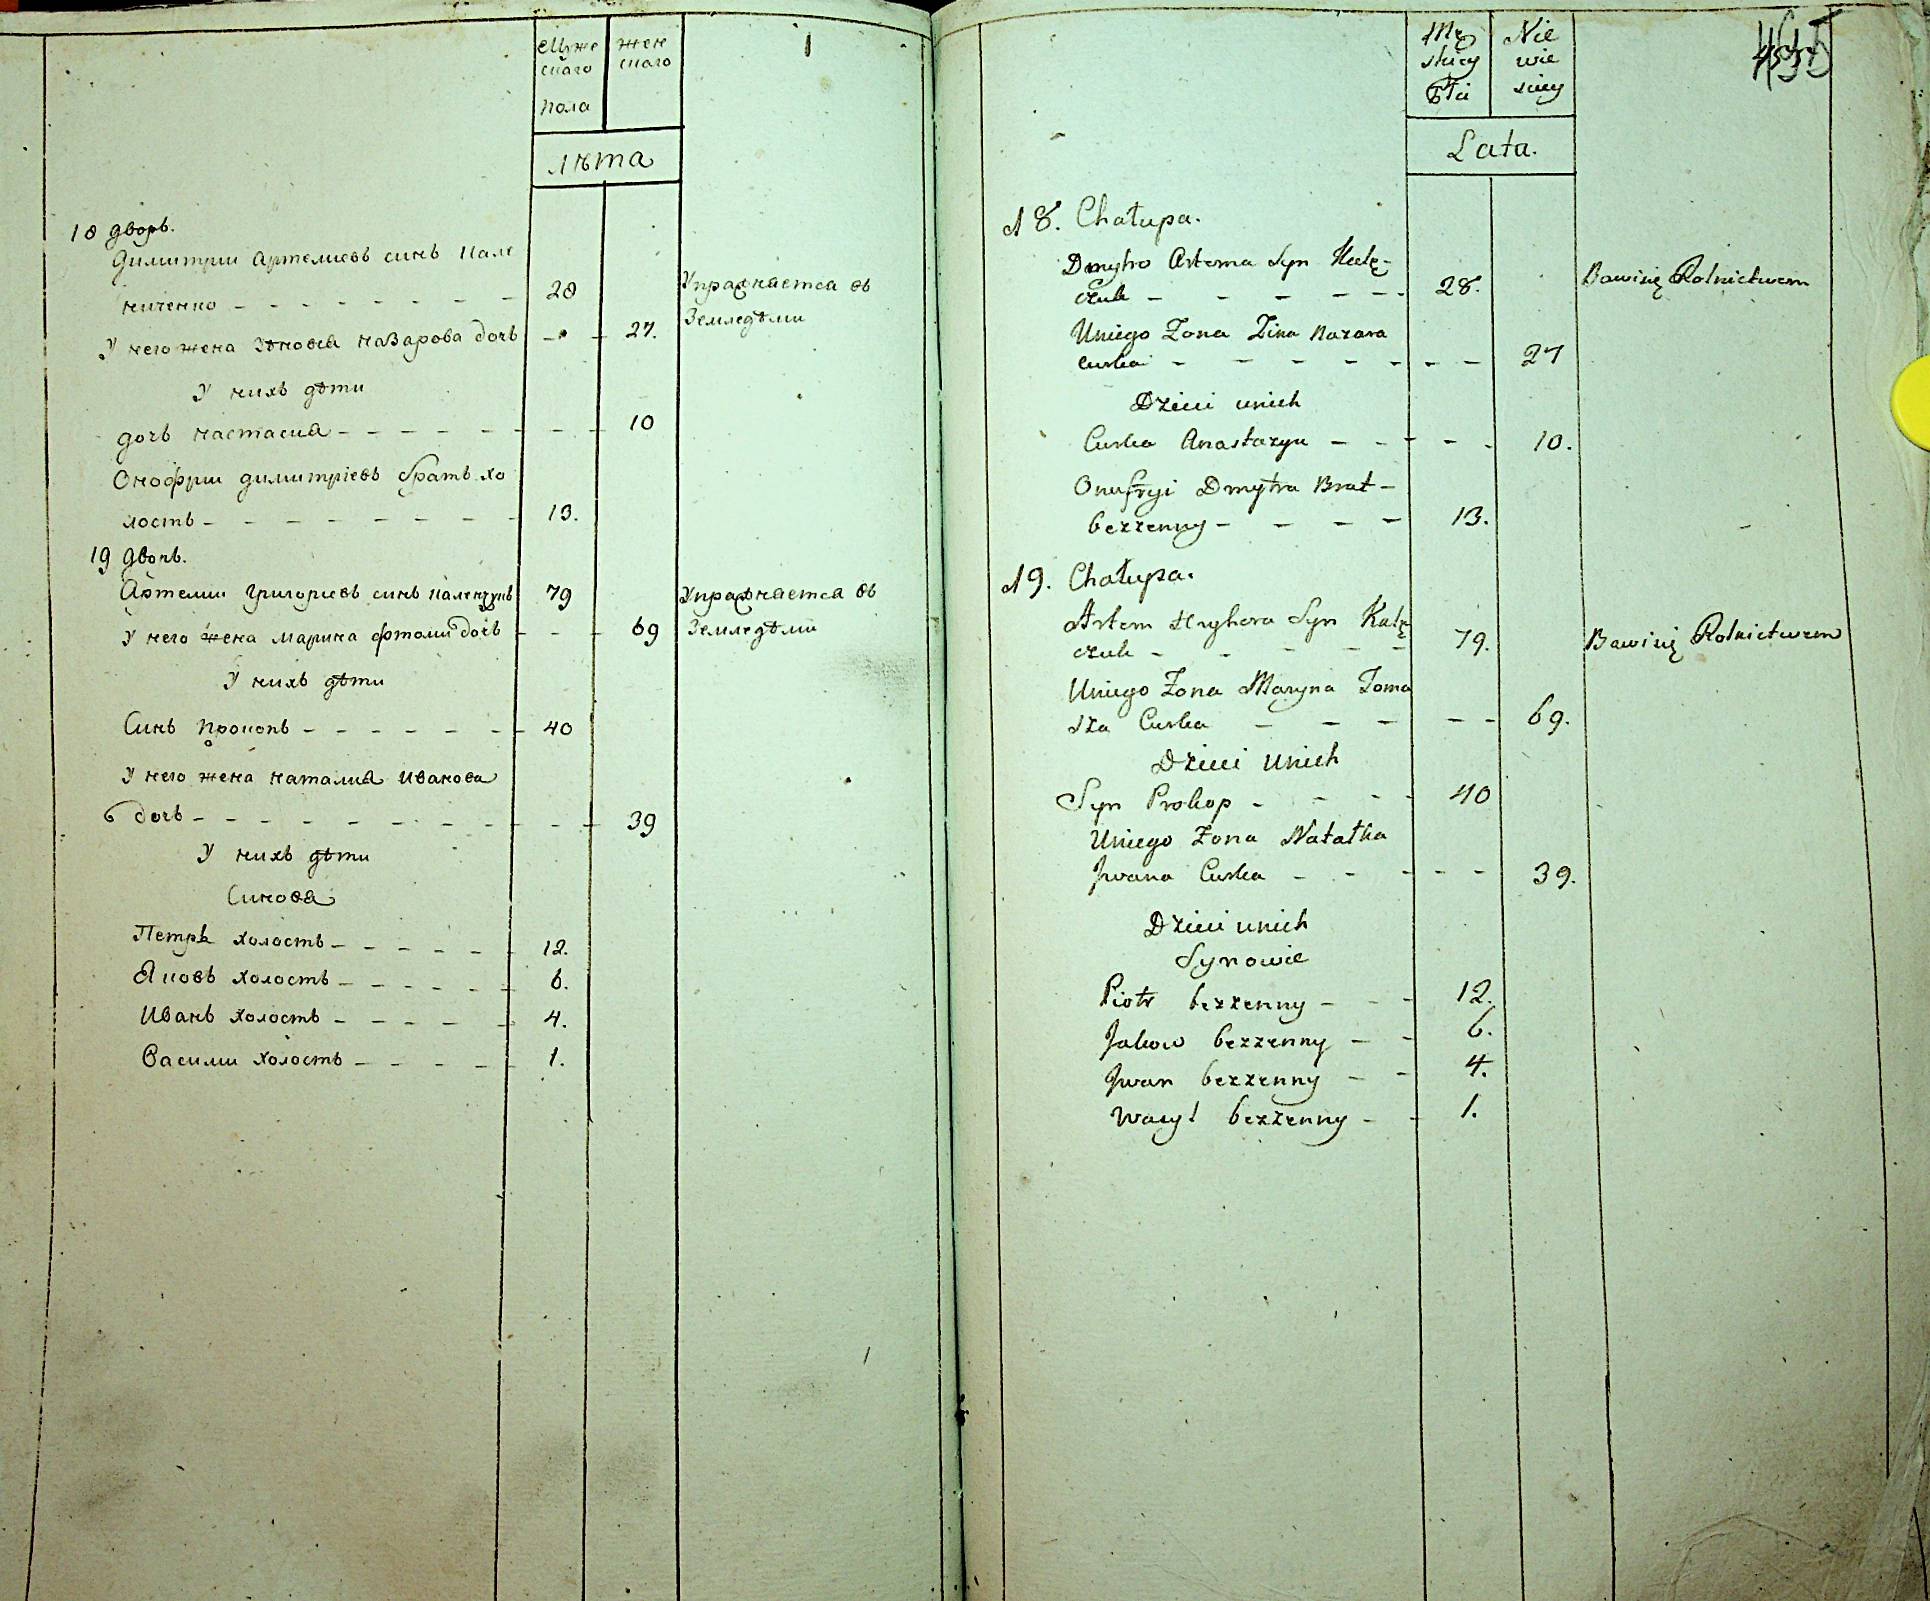 Муже
скаго
пола
жен
скаго
лѣта
18 дворъ.
Димитрии Артемиевъ синъ Кале
ниченко - - - - - - - 28
Упражняется въ
Земледѣлии
У него жена Зѣновия назарова дочъ - - 27.
У нихъ дѣти
дочъ настасия - - - - - - - 10
Онофрии димитріевъ братъ хо
лостъ - - - - - - - - 13.
19 дворъ.
Артемии григориевъ синъ Каленчукъ 79
Упражняется въ
Земледѣлии
У него жена марина фтоми дочъ - - - 69
У нихъ дѣти
Синъ Прокопъ - - - - - - - 40
У него жена наталия иванова
дочъ - - - - - - - - - - 39
У нихъ дѣти
Синовя
Петръ холостъ - - - - - 12.
Яковъ холостъ - - - - - 6.
Иванъ холостъ - - - - - 4.
Василии холостъ - - - - - 1.
Mę
skiey
Płci
Nie
wie
sciey
Lata.
18. Chałupa.
Dmytro Artema Syn Kalę-
czuk - - - - - - 28.
Bawi się Rolnictwem
Uniego Zona Zina Nazara
curka - - - - - - - - 27
Dzieci unich
Curka Anastazya - - - - - 10.
Onufryi Dmytra Brat -
bezzenny - - - - 13.
19. Chałupa.
Artem Hryhora Syn Kalę
czuk - - - - - 79.
Bawi się Rolnictwem
Uniego Zona Maryna Toma
sza Curka - - - - - 69.
Dzieci Unich
Syn Prokop - - - - 40
Uniego Zona Natałka
Jwana Curka - - - - - 39.
Dzieci unich
Synowie
Piotr bezzenny - - - 12.
Jakow bezzenny - - 6.
Jwan bezzenny - - 4.
Wasyl bezzenny - - 1.